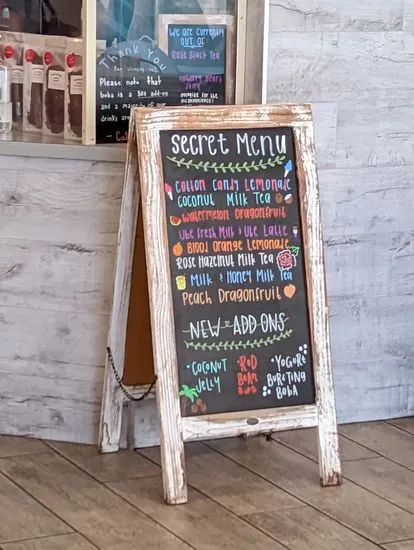 We are currently
OUT OF:
Rose Black Tea
Thank You
Please note that
boba is a 50¢ add-on
and a majority of our
drinks are
Secret Menu
Cotton Candy Lemonade
Coconut Milk Tea
Watermelon Dragonfruit
Ube Fresh Milk + Ube Latte
Blood Orange Lemonade
Rose Hazelnut Milk Tea
Milk & Honey Milk Tea
Peach Dragonfruit
NEW ADD ONS
•Coconut Jelly
•Red Bean
•Yogurt Bursting Boba